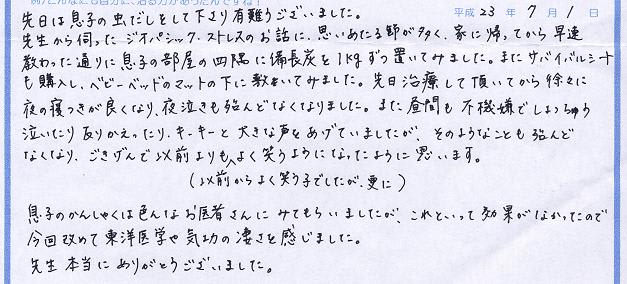 平成 23 年 7 月 1 日
先日は息子の虫だしをして下さり有難うございました。
先生から伺ったジオパシック・ストレスのお話に、思いあたる節が多く、家に帰ってから早速
教わった通りに息子の部屋の四隅に備長炭を1kgずつ置いてみました。またサバイバルシート
も購入し、ベビーベッドのマットの下に敷いてみました。先日治療して頂いてから徐々に
夜の寝つきが良くなり、夜泣きも殆んどなくなりました。また昼間も不機嫌でしょっちゅう
泣いたり反りかえったり、キーキーと大きな声をあげていましたが、そのようなことも殆んど
なくなり、ごきげんで以前よりも、よく笑うようになったように思います。
(以前からよく笑う子でしたが、更に)
息子のかんしゃくは色んなお医者さんにみてもらいましたが、これといって効果がなかったので
今回改めて東洋医学や気功の凄さを感じました。
先生本当にありがとうございました。